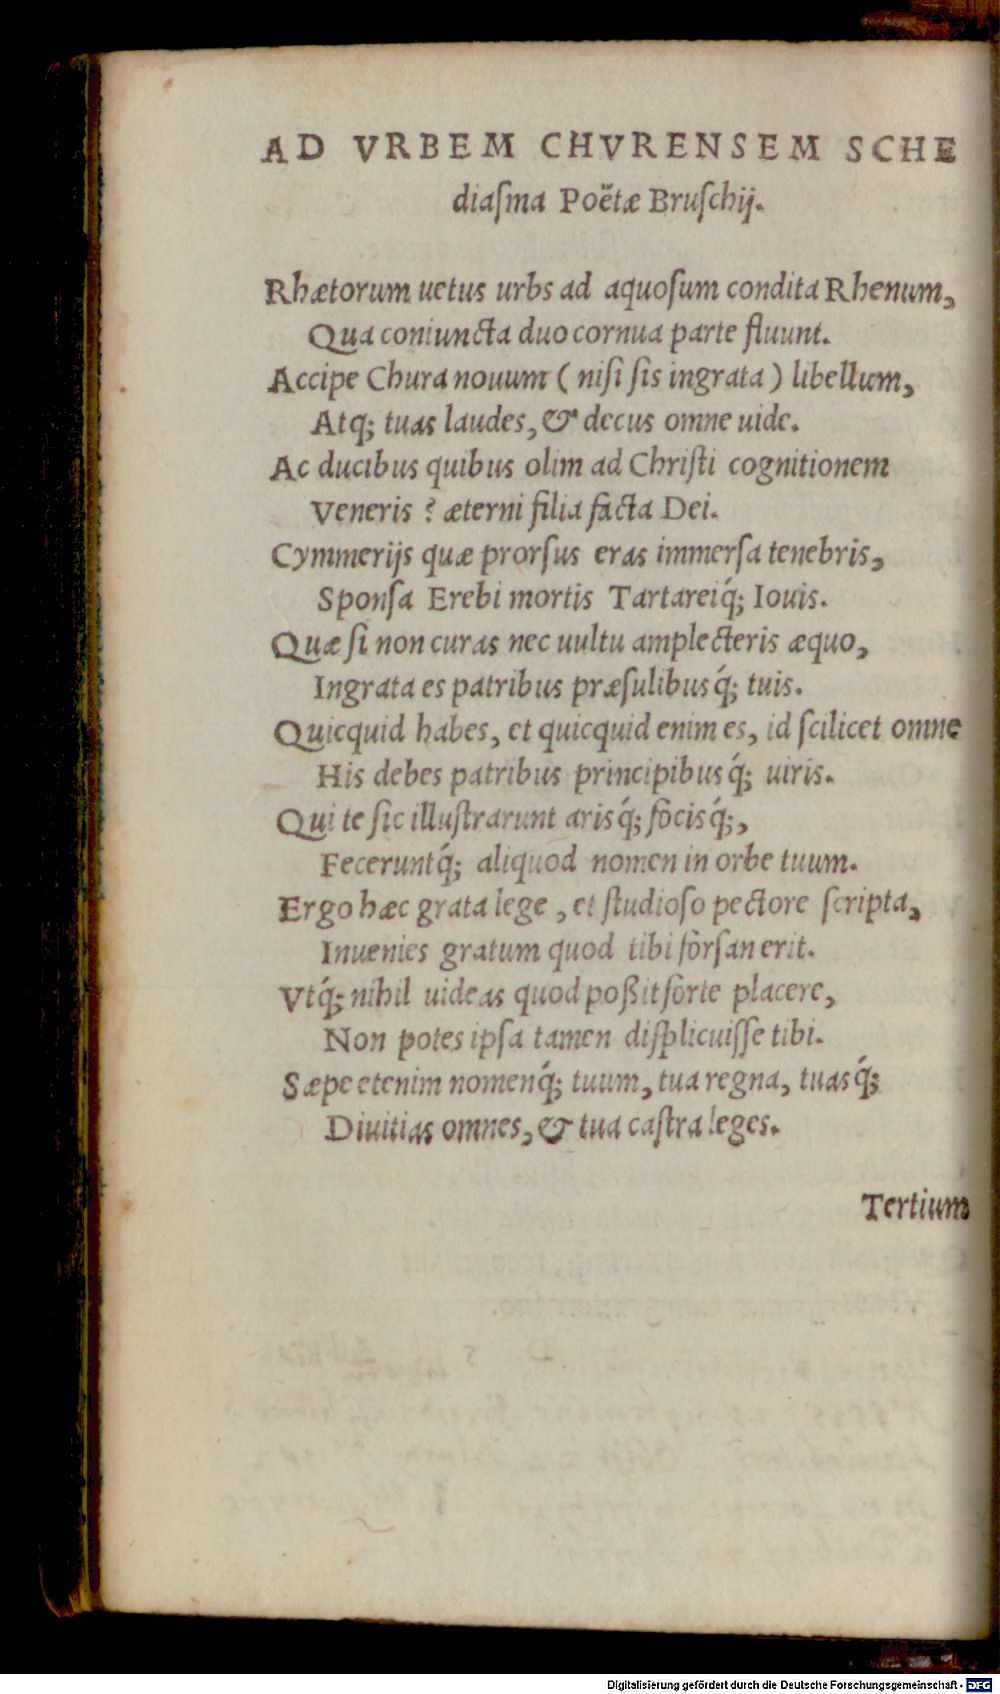 AD VRBEM CHVRENSEM SCHE
diaſma Poëtæ Bruſchij.
Rhætorum uetus urbs ad aquoſum condita Rhenum,
Qua coniuncta duo cornua parte fluunt.
Accipe Chura nouum ( niſi ſis ingrata ) libellum,
Atq; tuas laudes, & decus omne uide.
Ac ducibus quibus olim ad Chriſti cognitionem
Veneris ? æterni filia facta Dei.
Cymmerijs quæ prorſus eras immerſa tenebris,
Sponſa Erebi mortis Tartareiq́; Iouis.
Quæ ſi non curas nec uultu amplecteris æquo,
Ingrata es patribus præſulibusq́; tuis.
Quicquid habes, et quicquid enim es, id ſcilicet omne
His debes patribus principibusq́; uiris.
Qui te ſic illuſtrarunt arisq́; focisq́;,
Feceruntq́; aliquod nomen in orbe tuum.
Ergo hæc grata lege , et ſtudioſo pectore ſcripta,
Inuenies gratum quod tibi forſan erit.
Vtq́; nihil uideas quod poßit forte placere,
Non potes ipſa tamen diſplicuiſſe tibi.
Sæpe etenim nomenq́; tuum, tua regna, tuasq́;
Diuitias omnes, & tua caſtra leges.
Tertium
Digitalisierung gefördert durch die Deutsche Forschungsgemeinschaft - DFG